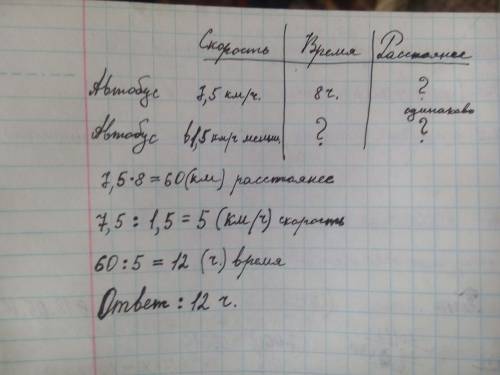 Скорость Время Расстояние
Автобус 7,5 км/ч. 8 ч. ?
одинаково
Автобус в 1,5 км/ч меньш ? ?
7,5 · 8 = 60 (км) расстояние
7,5 : 1,5 = 5 (км/ч) скорость
60 : 5 = 12 (ч.) время
Ответ : 12 ч.